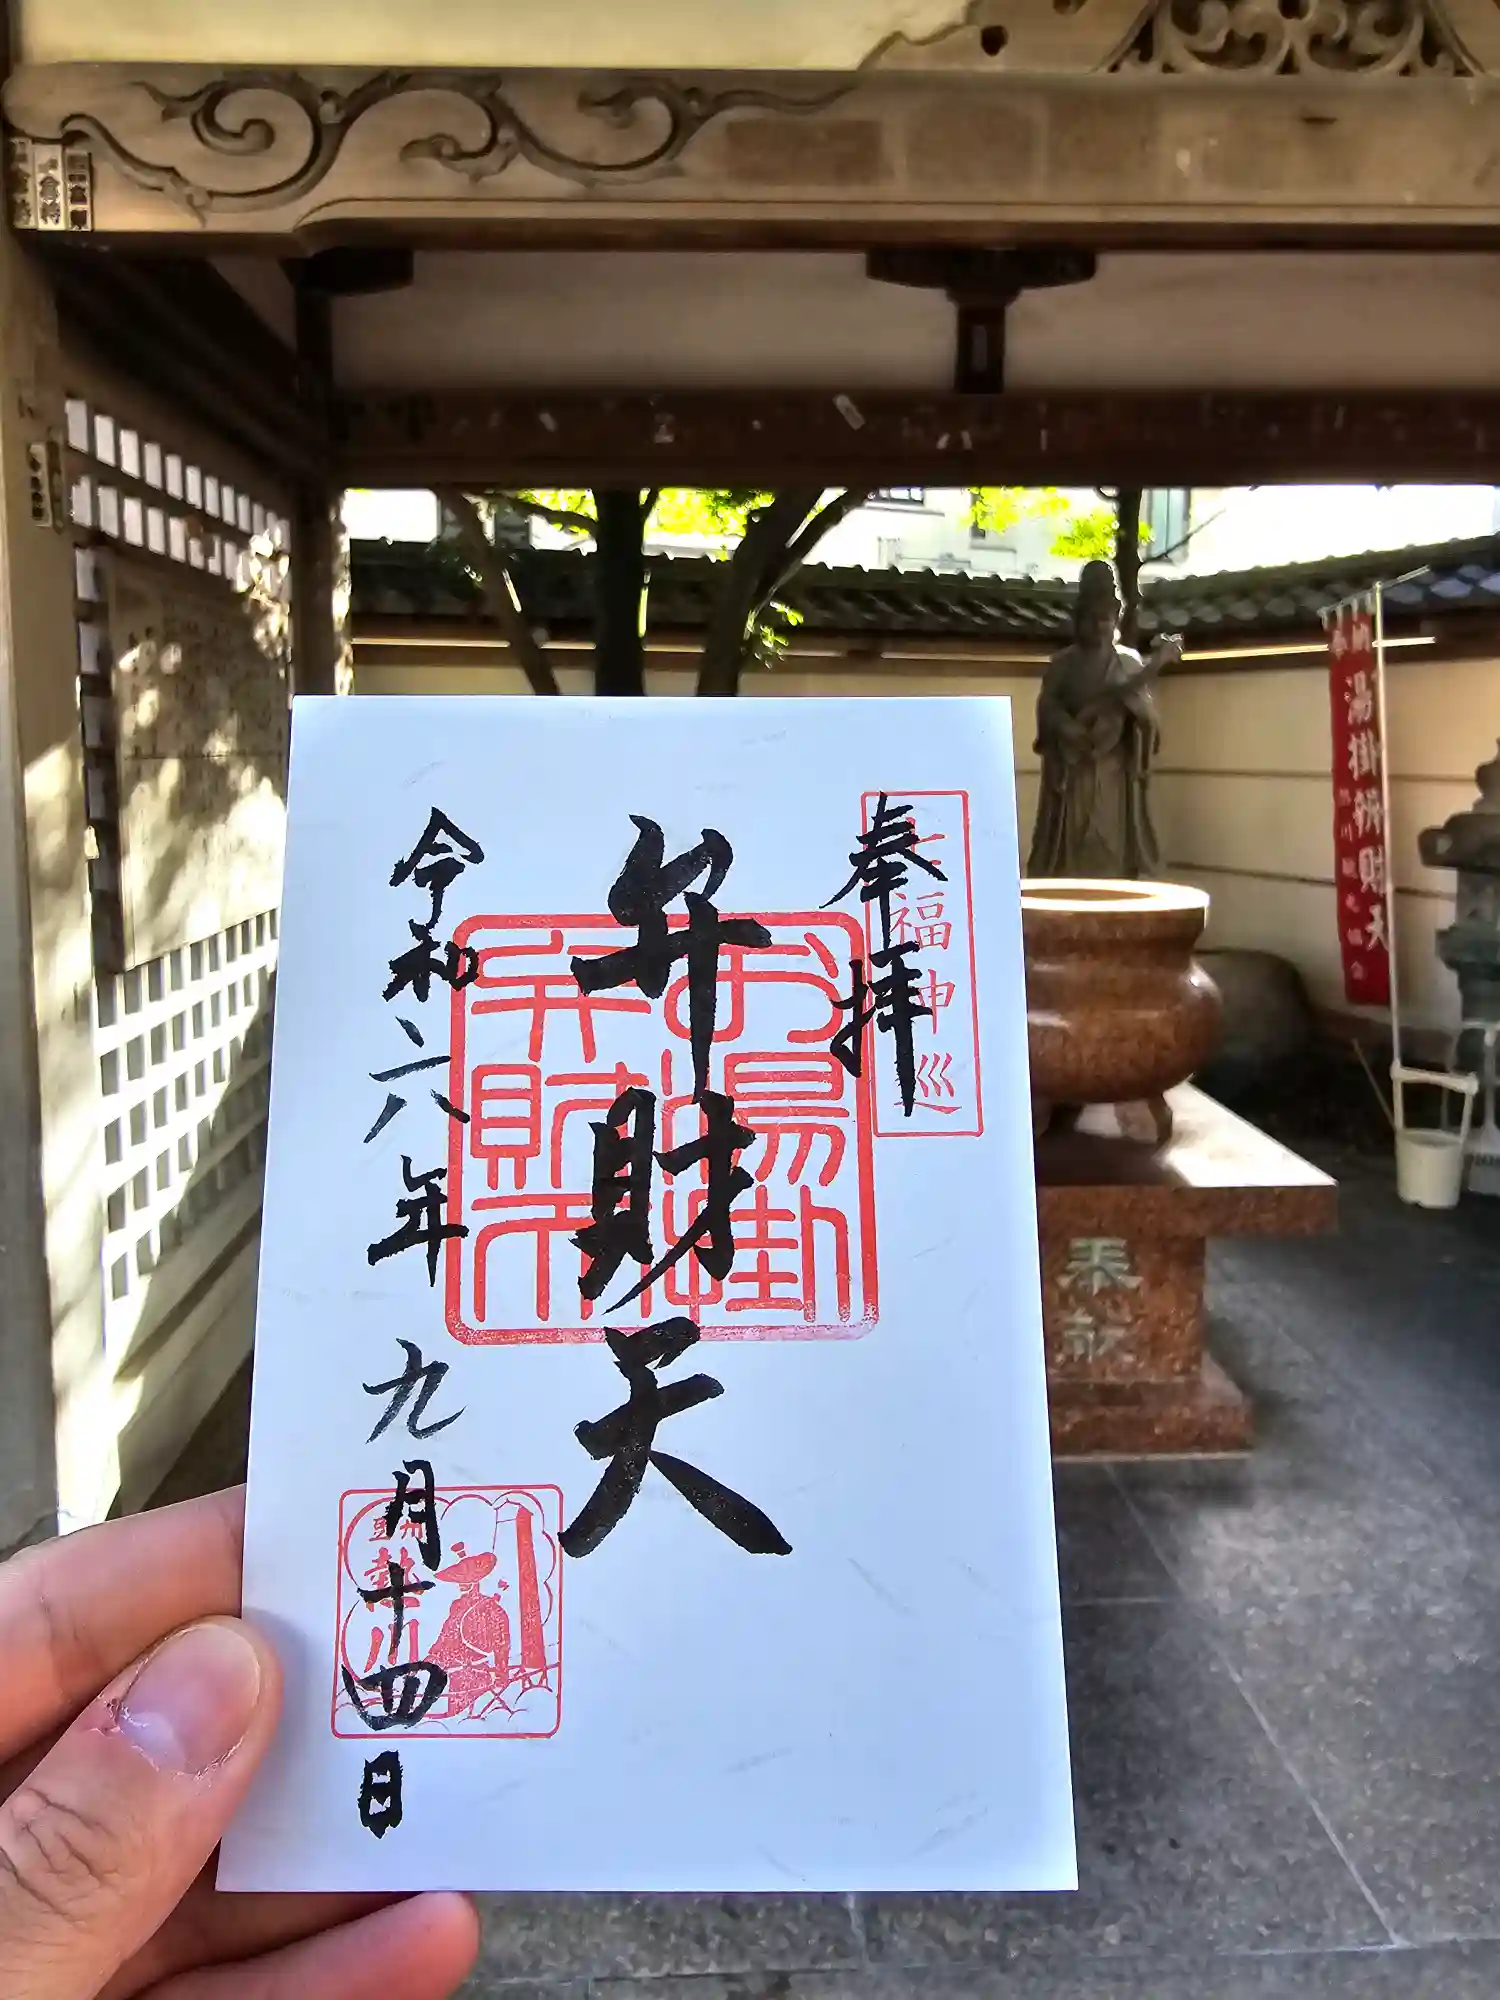 奉拝
七福神巡
弁財天
お湯掛
弁財天
令和六年九月十四日
豆州
熱川
奉納
湯掛辨財天
奉献